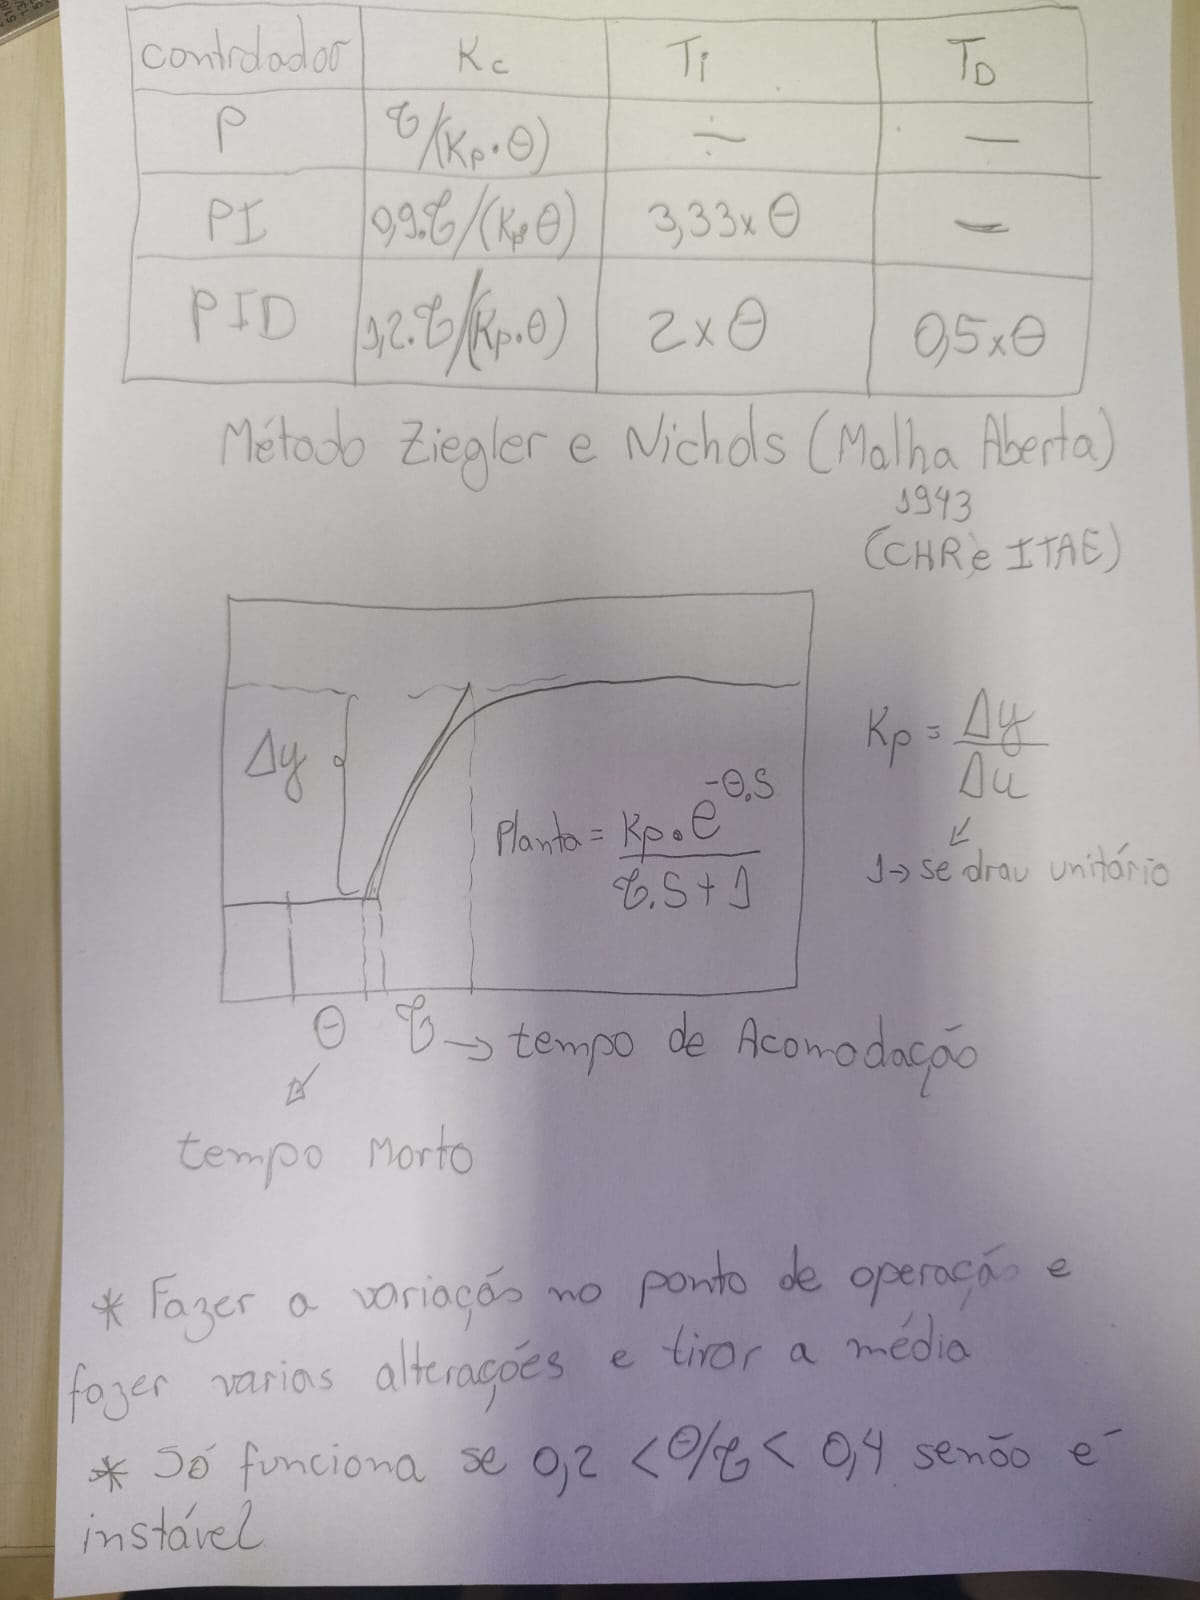 controlador Kc Ti TD
P τ/(Kp.θ) ÷ —
PI 0,9.τ/(Kp.θ) 3,33xθ —
PID 1,2.τ/(Kp.θ) 2xθ 0,5xθ
Método Ziegler e Nichols (Malha Aberta)
1943
(CHR e ITAE)
Δy
Planta = Kp.e^-θ.S / τ.S+1
Kp = Δy/Δu
1→ se drau unitário
θ τ → tempo de Acomodação
tempo Morto
* Fazer a variação no ponto de operação e
fazer varias alterações e tirar a média
* Só funciona se 0,2 < θ/τ < 0,4 senão é
instável